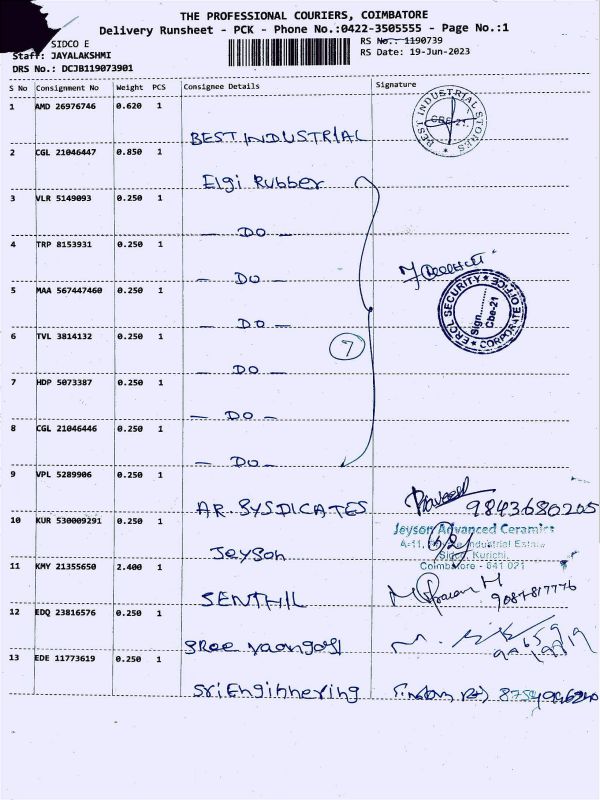 THE PROFESSIONAL COURIERS, COIMBATORE
Delivery Runsheet - PCK - Phone No.:0422-3505555 - Page No.:1
SIDCO E
RS No.: 1190739
Staff: JAYALAKSHMI
RS Date: 19-Jun-2023
DRS No.: DCJB119073901
S No Consignment No Weight PCS Consignee Details Signature
1 AMD 26976746 0.620 1
BEST INDUSTRIAL
BEST INDUSTRIAL STORES
CBE-21.
2 CGL 21046447 0.850 1
Elgi Rubber
3 VLR 5149093 0.250 1
— DO —
4 TRP 8153931 0.250 1
— DO —
5 MAA 567447460 0.250 1
— DO —
ERCL SECURITY
CORPORATE OFFICE
Sign.........
Cbe-21
6 TVL 3814132 0.250 1
— DO —
7
7 HDP 5073387 0.250 1
— DO —
8 CGL 21046446 0.250 1
— DO —
9 VPL 5289906 0.250 1
AR. SYSDICATES
Praveen
9843680205
10 KUR 530009291 0.250 1
Jeyson
Jeyson Advanced Ceramics
Industrial Estate
Sidco, Kurichi,
Coimbatore - 641 021
11 KMY 21355650 2.400 1
SENTHIL
9087817776
12 EDQ 23816576 0.250 1
Sree
13 EDE 11773619 0.250 1
Sri Enginnering